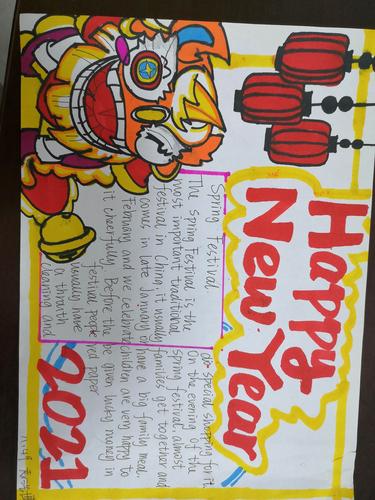 Happy
New Year
Spring Festival
The Spring Festival is the
most important traditional
festival in China, it usually
comes in late January or
February and we celebrate
it cheerfully. Before the
festival, people
usually have
a
cleaning and
do special shopping for it
On the evening of the
spring festival, almost
families get together and
have a big family meal.
children are very happy to
be given lucky money in
red paper
2021